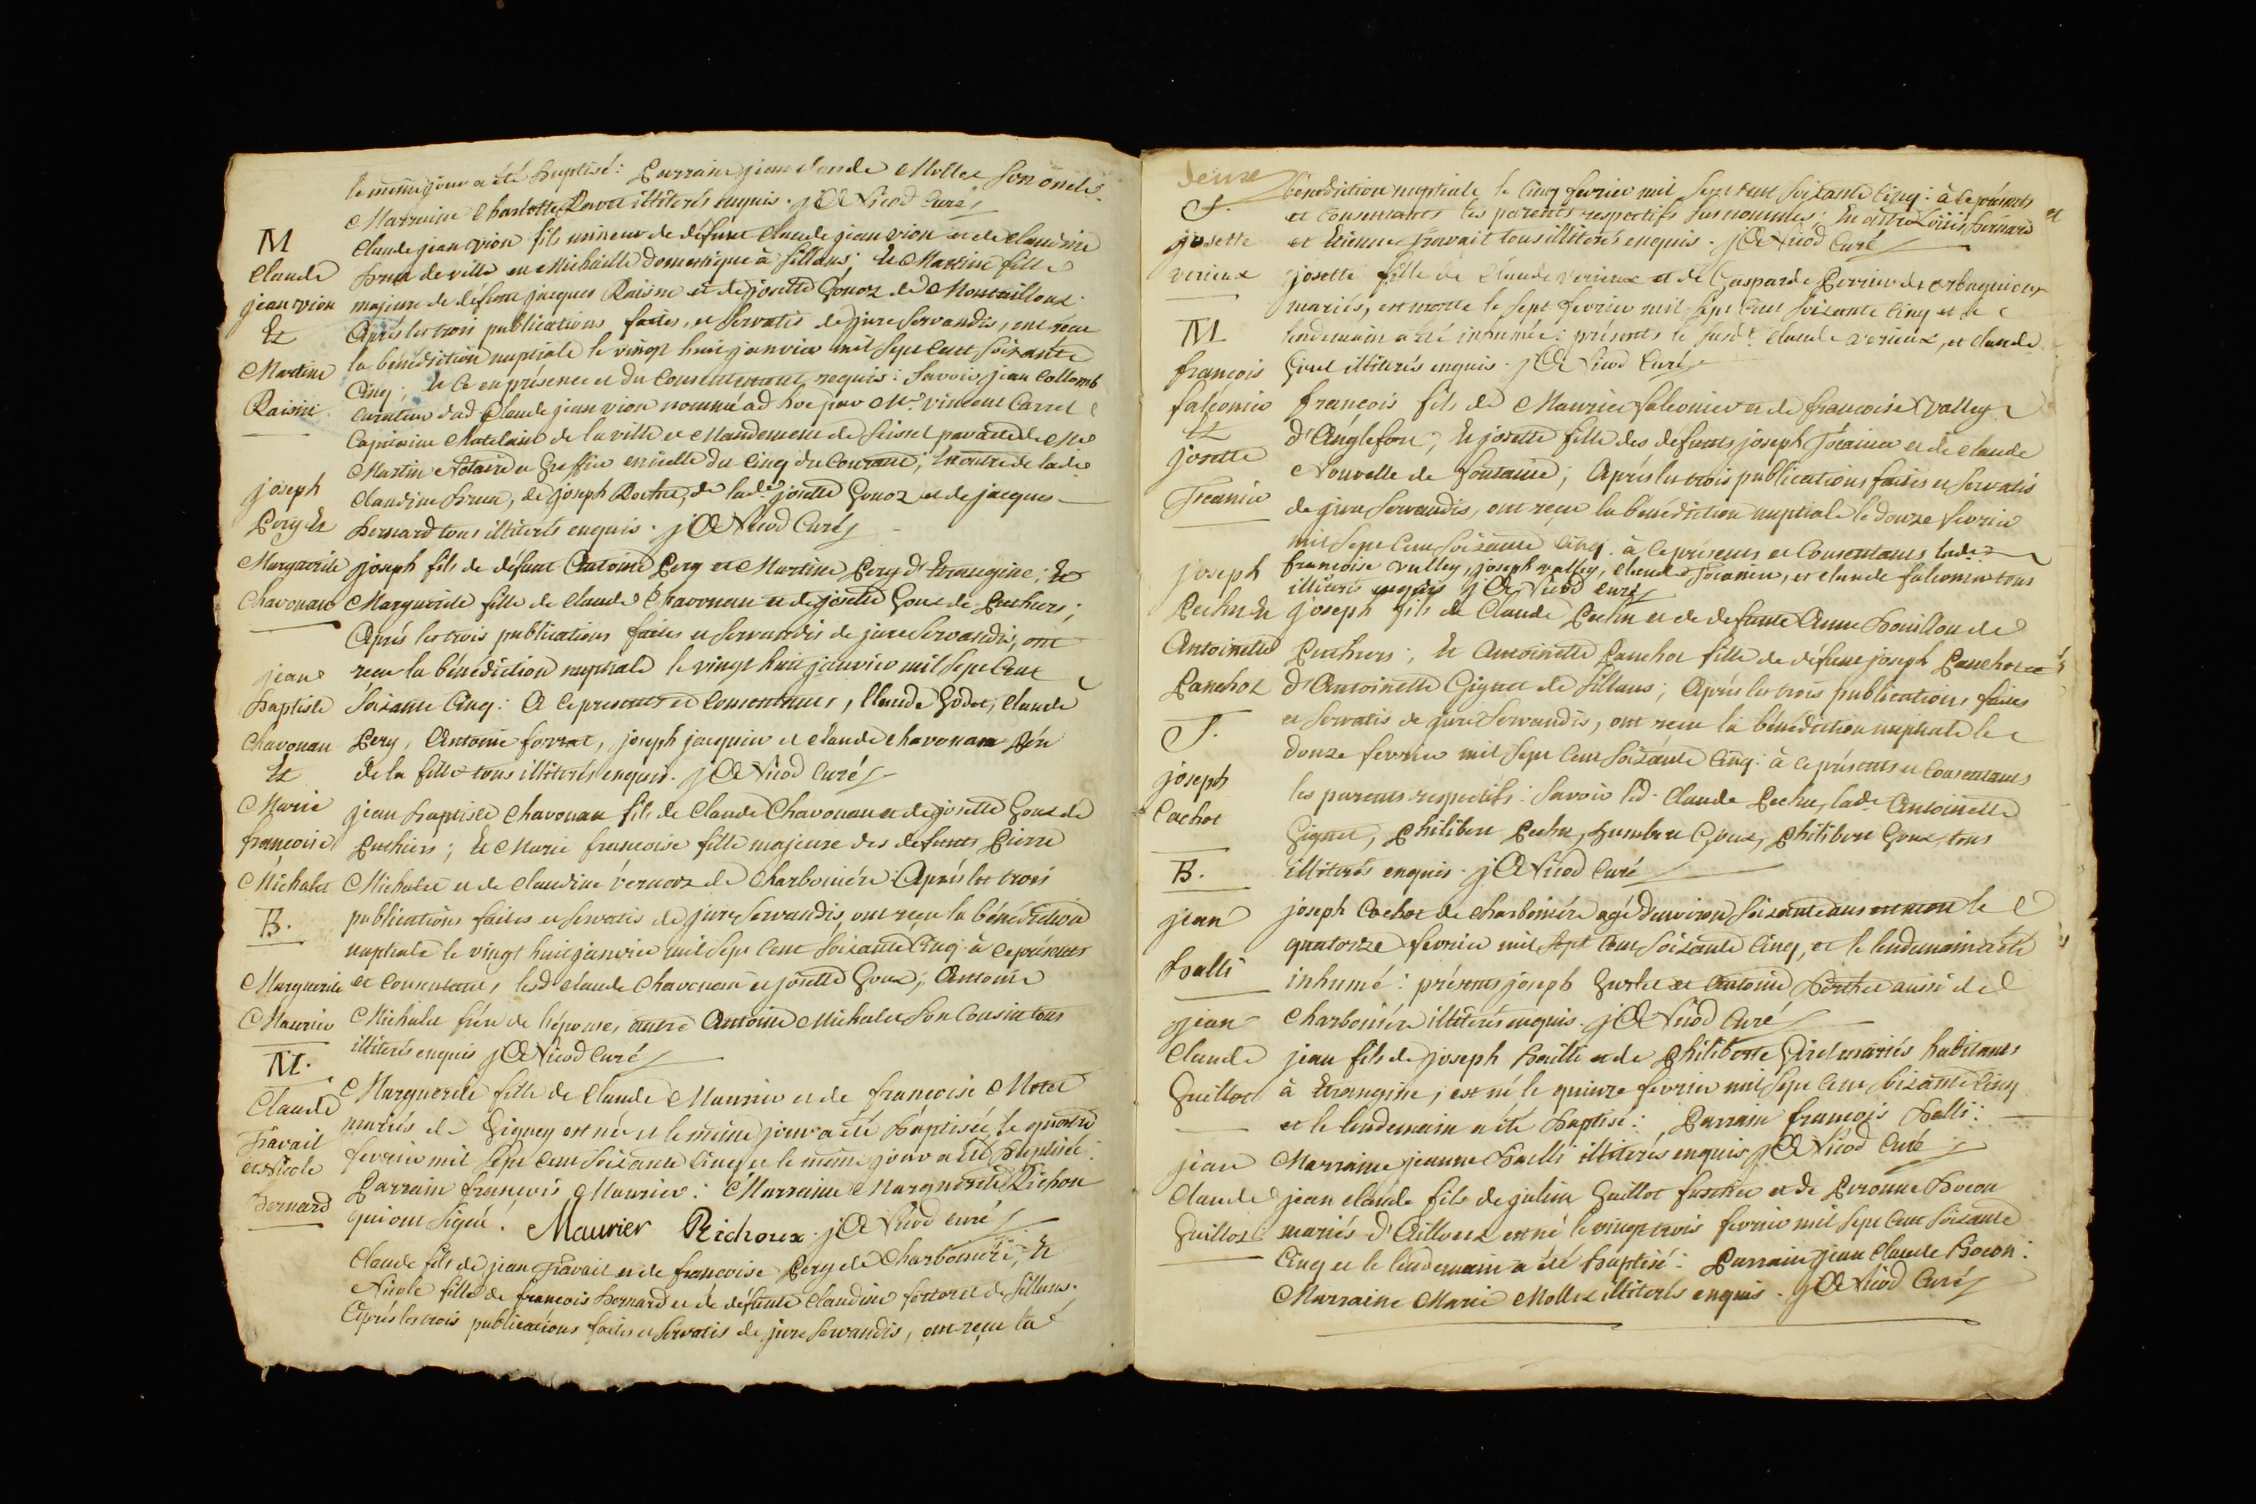 le même jour a été baptisé: Parrain jean claude Mollex son oncle:
Marraine Charlotte Ravet illiterés enquis. j A Nicod Curé
M
Claude
jean vion
Et
Martine
Raisin
Claude jean vion fils mineur de défunt Claude jean vion et de Claudine
brun de ville en Michaille domestique à Sillans; Et Martine fille
majeure de défunt jacques Raisin et de josette Gonoz de
Aprés les trois publications faites, et servatis de jure servandis, ont reçu
la bénédiction nuptiale le vingt huit janvier mil sept cent soixante
Cinq; Et ce en présence et du Consentement requis: Savoir jean Collomb
Curateur dud. Claude jean vion nommé ad hoc par Mr. vincent Carrel
Capitaine Chatelain de la ville et Mandement de Seissel par acte de Me
Martin Notaire et Greffier en icelle du Cinq du Courant; En outre de lade
Claudine brun, de joseph Berthet, de lade. josette Gonoz et de jacques
bernard tous illiterés enquis. j A Nicod Curé
joseph
Pery Et
Marguerite
Chavonan
joseph fils de défunt Antoine Pery et Martine Pery d'Etrangine; Et
Marguerite fille de Claude Chavonan et de josette Goux de Puthiers;
Aprés les trois publications faites et servandis de jure servandis, ont
reçu la bénédiction nuptiale le vingt huit janvier mil sept Cent
soixante Cinq: A ce presents et Consentants, Claude Godet, Claude
Pery, Antoine forrat, joseph jacquin et Claude Chavonan pére
de la fille tous illiterés enquis. j A Nicod Curé
jean
baptiste
Chavonan
Et
Marie
françoise
Michalet
jean baptiste Chavonan fils de Claude Chavonan et de josette Goux de
Puthiers; Et Marie francoise fille majeure des defunts Pierre
Michalet et de Claudine vernoz de Charboniére: Aprés les trois
publications faites et servatis de jure servandis, ont reçu la bénédiction
nuptiale le vingt huit janvier mil sept Cent soixante Cinq: à ce présents
et Consentants, lesd. Claude Chavonan et josette Goux, Antoine
Michalet frére de l'épouse, autre Antoine Michalet son Cousin tous
illiterés enquis j A Nicod Curé
B.
Marguerite
Maurier
Marguerite fille de Claude Maurier et de françoise Motet
mariés de Gignez est née et le même jour a été baptisée le quatre
fevrier mil sept Cent soixante Cinq et le même jour a été baptisée:
Parrain françois Maurier: Marraine Marguerite Richon
qui ont signé. Maurier Richoux. j A Nicod Curé
M.
Claude
Travail
et Nicole
bernard
Claude fils de jean Travail et de françoise Pery de Charboniére, Et
Nicole fille de françois bernard et de défunte Claudine de Sillans.
Aprés les trois publications faites et servatis de jure servandis, ont reçu la
bénédiction nuptiale le Cinq fevrier mil sept cent soixante Cinq: à ce présents
et Consentants les parents respectifs susnommés: En outre Loüis bernard
et Etienne Travait tous illiterés enquis. j A Nicod Curé
S.
josette
verieux
josette fille de Claude verieux et de Gasparde Perrier
mariés, est morte le sept fevrier mil sept Cent soixante Cinq et le
lendemain a été inhumée: présents le susd.t Claude verieux, et Claude
Girel illiterés enquis. j A Nicod Curé
M
françois
falconier
Et
josette
françois fils de Maurice falconier et de françoise valley
d'Anglefort; Et josette fille des defunts joseph et de Claude
Nouvelle de fontaine; Aprés les trois publications faites et servatis
de jure servandis, ont reçu la bénédiction nuptiale le douze fevrier
mil sept Cent soixante Cinq. à ce présents et Consentants lade
françoise valley, joseph valley, Claude et Claude falconier tous
illiterés enquis j A Nicod Curé
joseph
Pechu Et
Antoinette
Panchot
joseph fils de Claude Pechu et de defunte Anne bouillon de
Puthiers; Et Antoinette Panchot fille de défunt joseph Panchot et
d'Antoinette Gignet de Sillans; Aprés les trois publications faites
et servatis de jure servandis, ont reçu la bénédiction nuptiale le
douze fevrier mil sept Cent soixante Cinq: à ce présents et Consentants
les parents respectifs: Savoir led. Claude Pechu, lade. Antoinette
Gignet, Philibert Pechu, humbert Goux, Philibert Goux, tous
illiterés enquis. j A Nicod Curé
S.
joseph
Cachot
joseph Cachot de Charboniére agé d'environ soixante ans est mort le
quatorze fevrier mil sept Cent soixante Cinq, et le lendemain a été
inhumé: présents joseph et Antoine berthet aussi de
Charboniére illiterés enquis. j A Nicod Curé
B.
jean
bailli
jean fils de joseph bailli et de Philiberte Girel mariés habitants
à Etrangine, est né le quinze fevrier mil sept Cent soixante Cinq
et le lendemain a été baptisé: Parrain françois bailli:
Marraine jeanne bailli illiterés enquis j A Nicod Curé
jean
Claude
Guillot
jean
Claude
Guillot
jean claude fils de julien Guillot fustier et de Peronne bocon
mariés d'Ailloux est né le vingt trois fevrier mil sept Cent soixante
Cinq et le lendemain a été baptisé: Parrain jean Claude bocon:
Marraine Marie Mollex illiterés enquis. j A Nicod Curé